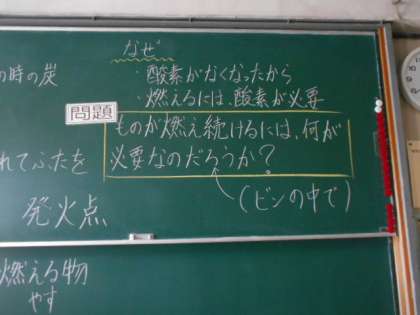 なぜ
・酸素がなくなったから
・燃えるには、酸素が必要
の時の炭
問題
ものが燃え続けるには、何が
必要なのだろうか?
(ビンの中で)
れてふたを
発火点
燃える物
やす